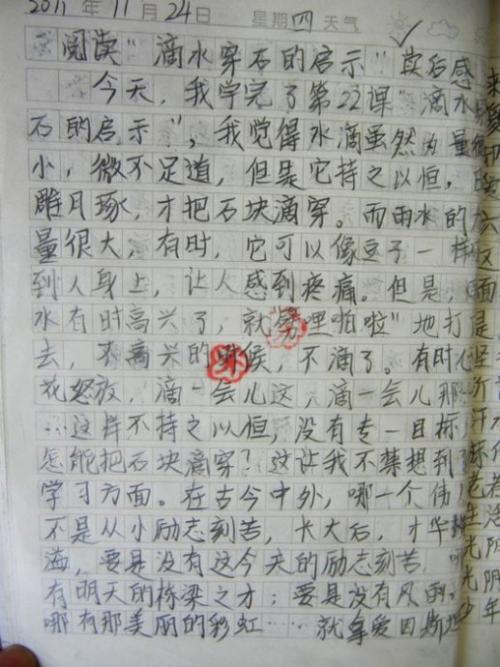 2011年11月24日 星期四 天气
阅读"滴水穿石的启示"读后感
今天,我学完了第22课"滴水
石的启示",我觉得水滴虽然力量
小,微不足道,但是它持之以恒,
雕月琢,才把石块滴穿。而雨水的力
量很大,有时,它可以像豆子一样
到人身上,让人感到疼痛。但是,
水有时高兴了,就"劈哩啪啦"地打
去,不高兴的时候,不滴了。有时心
花怒放,滴一会儿这,滴一会儿那
…这样不持之以恒,没有专一目标
怎能把石块滴穿?这让我不禁想到了
学习方面。在古今中外,哪一个伟
不是从小励志刻苦,长大后,才华
溢,要是没有这今天的励志刻苦
有明天的栋梁之才;要是没有风雨
哪有那美丽的彩虹……就拿爱因斯